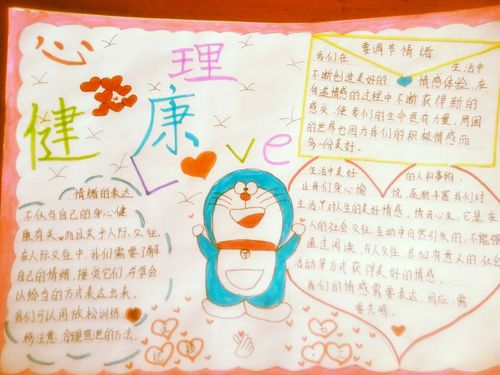 心理
健康
Love
要调节情绪
我们在 生活中
不断创造美好的 情感体验,在
传递情感的过程中不断获得新的
感受,使我们的生命更有力量,周围
的世界也因为我们的积极情感而
多一份美好。
情绪的表达
不仅与自己的身心健
康有关,而且关乎人际交往。
在人际交往中,我们需要了解
自己的情绪,接受它们,并学会
以恰当的方式表达出来。
我们可以用放松训练、
转移注意、合理宣泄的方法。
生活中美好 的人和事物,
让我们身心愉 悦,逐渐丰富我们对
生活、对人生的美好情感,情由心生,它是在
人的社会交往、互动中自然引发的,不能强
通过阅读、与人交往、参加有意义的社会
活动等方式获得美好的情感。
我们的情感需要表达、回应,需
要共鸣。